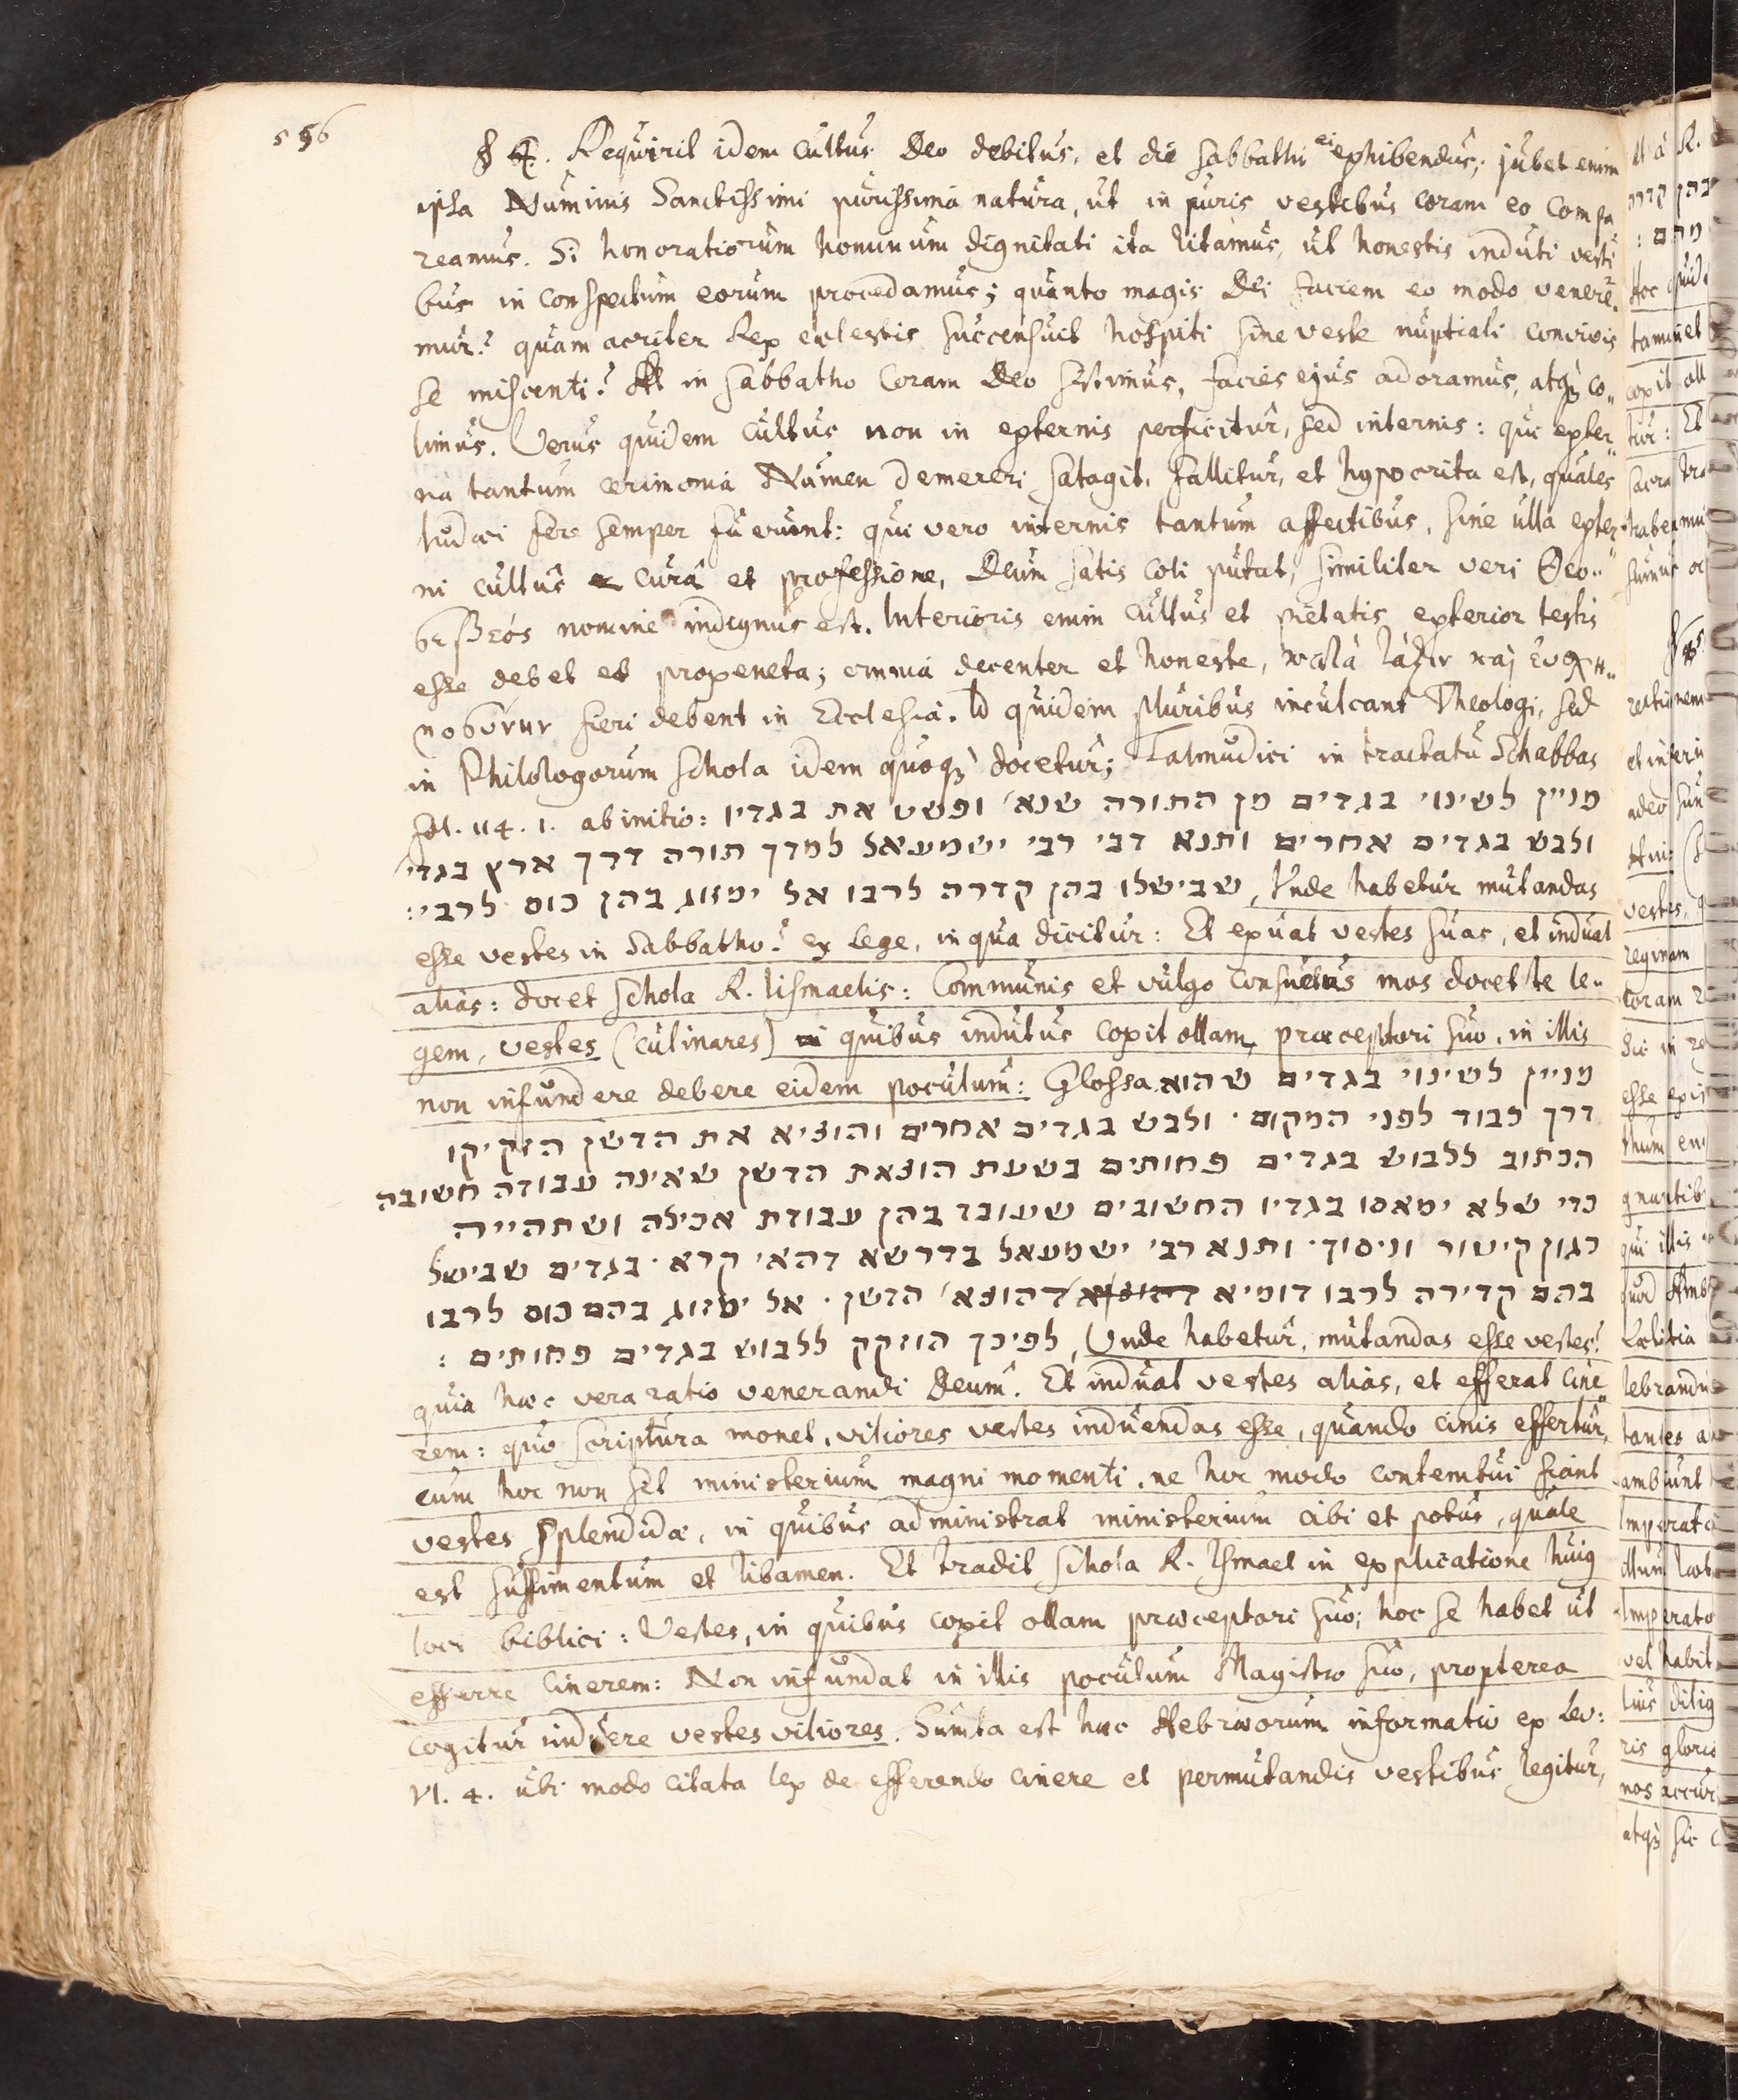 556
§ 4. Requirit idem cultus Deo debitus, et die Sabbathi ei exhibendus; jubet enim
ipsa Numinis Sanctissimi purissima natura, ut in puris vestibus coram eo compa
reamus. Si honoratiorum hominum dignitati ita litamus, ut honestis induti vesti
bus in conspectum eorum procedamus; quanto magis Dei faciem eo modo venere„
mur? quam acriter Rex cœlestis succensuit hospiti sine veste nuptiali convivis
se miscenti? At in Sabbatho coram Deo sistimus, facies ejus adoramus, atq̃ co„
limus. Verus quidem cultus non in externis perficitur, sed internis: qui exter„
na tantum cerimonia Numen demereri satagit, fallitur, et hypocrita est, quales
Iudæi fere semper fuerunt: qui vero internis tantum affectibus, sine ulla exter„
ni cultus cura et professione, Deum satis coli putat, similiter veri Θεο„
σεβεός nomine indignus est. Interioris enim cultus et pietatis exterior testis
esse debet et propeneta; omnia decenter et honeste, κατὰ τάξιν καὶ ευσχη„
μοσύνην fieri debent in Ecclesia. Id quidem pluribus inculcant Theologi, sed
in Philologorum Schola idem quoq̃ docetur; Talmudici in tractatu Schabbas
fol. 114. 1. ab initio: מניין לשינוי בגדים מן התורה שנא׳ ופשט את בגדיו
ולבש בגדים אחרים ותנא דבי רבי ישמעאל למדך תורה דרך ארץ בגדי׳
שבישלו בהן קדרה לרבו אל ימזוג בהן כוס לרבי: Unde habetur mutandas
esse vestes in Sabbatho? ex Lege, in qua dicitur: Et exuat vestes suas, et induat
alias: docet Schola R. Iismaelis: Communis et vulgo consuetus mos docet te le„
gem, vestes (culinares) quibus indutus coxit ollam præceptori suo, in illis
non infundere debere eidem poculum: Glossa מניין לשינוי בגדים שהוא
דרך כבוד לפני המקום · ולבש בגדים אחרים והוציא את הדשן הזקיקו
הכתוב ללבוש בגדים פחותים בשעת הוצאת הדשן שאינה עבודה חשובה
כדי שלא ימאסו בגדיו החשובים שעובד בהן עבודת אכילה ושתהייה
כגון קיטור וניסוך · ותנא רבי ישמעאל בדרשא דהאי קרא · בגדים שבישל
בהם קדירה לרבו דומיא דהוצא׳ הדשן · אל ימזוג בהם כוס לרבו
לפיכך הוזקק ללבוש בגדים פחותים : Unde habetur, mutandas esse vestes?
quia hæc vera ratio venerandi Deum. Et induat vestes alias, et efferat cine„
rem: quo Scriptura monet, viliores vestes induendas esse, quando cinis effertur,
cum hoc non sit ministerium magni momenti, ne hoc modo contemtui fiant
vestes splendidæ, in quibus administrat ministerium cibi et potus, quale
est suffimentum et libamen. Et tradit Schola R. Ismael in explicatione huiꝯ
loci biblici: Vestes, in quibus coxit ollam præceptori suo; hoc se habet ut
efferre cinerem: Non infundat in illis poculum Magistro suo, propterea
cogitur induere vestes viliores. Sumta est hæc Hebræorum informatio ex Lev:
VI. 4. ubi modo citata lex de efferendo cinere et permutandis vestibus legitur,